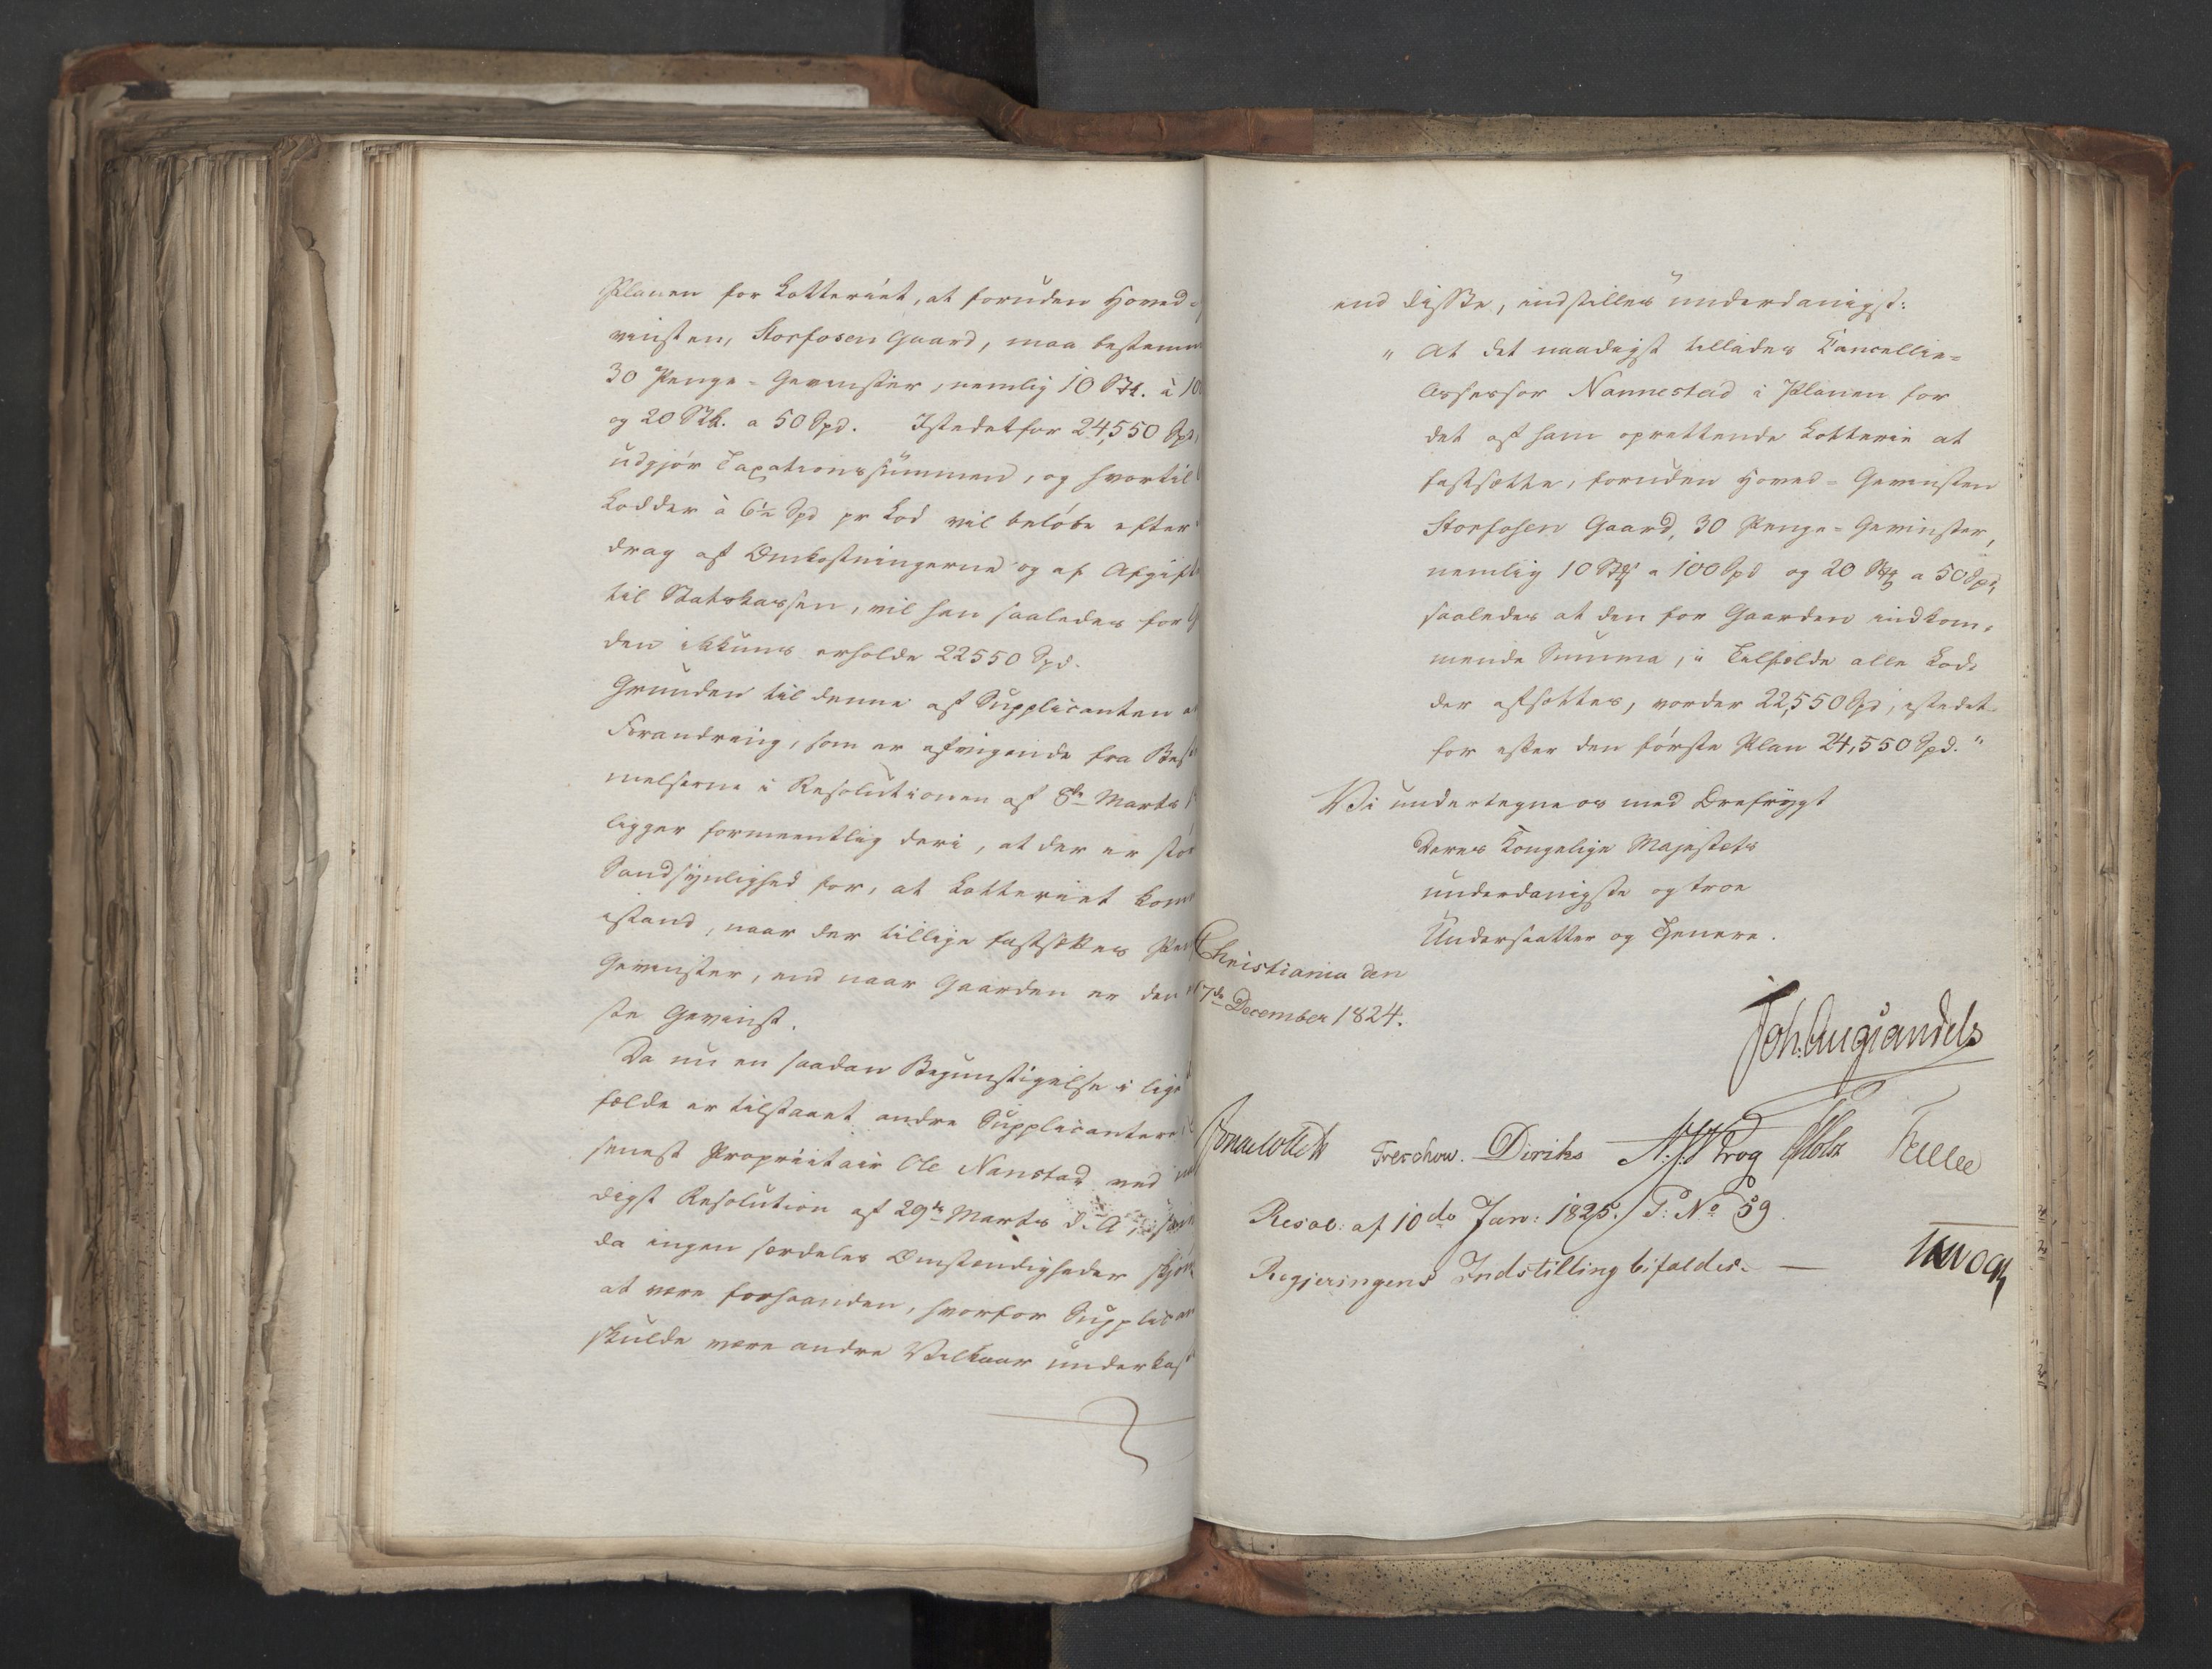 Planen for Lotteriet, at foruden Hoved-
vinsten, Storfosen Gaard, maa bestemm
30 Penge-Gevinster, nemlig 10 Stk. à 10
og 20 Stk. a 50 Spd. Istedetfor 24,550 Spd,
udgjør Taxationssummen, og hvortil
Lodder à 6½ Spd pr Lod vil beløbe efter
drag af Omkostningerne og af Afgift
til Statskassen, vil han saaledes for G
den ikkuns erholde 22550 Spd.
Grunden til denne af Supplicanten
Forandring, som er afvigende fra Bes
melserne i Resolutionen af 8de Marts
ligger formeentlig deri, at der er stør
Sandsynlighed for, at Lotteriet kom
istand, naar der tillige fastsættes Pen
Gevinster, end naar Gaarden er den
ste Gevinst.
Da nu en saadan Begunstigelse i lige
fælde er tilstaaet andre Supplicantere
senest Proprietair Ole Nanstad ved na
digst Resolution af 29de Marts d. A.,
da ingen særdeles Omstændigheder skjøn
at være forhaanden, hvorfor Supplican
skulde være andre Vilkaar underkas
end disse, indstilles underdanigst:
" At det naadigst tillades Cancellie-
Assessor Nannestad i Planen for
det af ham oprettende Lotterie at
fastsætte, foruden Hoved-Gevinsten
Storfosen Gaard, 30 Penge-Gevinster,
nemlig 10 Stk a 100 Spd og 20 Stk a 50 Spd,
saaledes at den for Gaarden indkom-
mende Summa, i Tilfælde alle Lod-
der afsættes, vorder 22,550 Spd, istedet-
for efter den første Plan 24,550 Spd."
Vi undertegne os med Ærefrygt
Deres Kongelige Majestæts
underdanigste og troe
Undersaatter og Tjenere.
Christiania den
7de December 1824.
Joh. Aug. Sandels
Sommerfeldt Treschow. Diriks N. J. Krog Holst
Resol: af 10de Jan: 1825. / P: No 59
Regjeringens Indstilling bifaldes. —